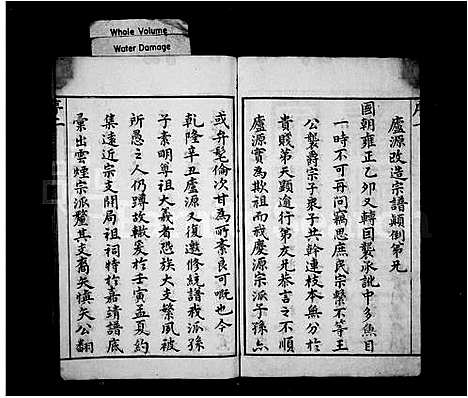 Whole Volume
Water Damage
廬源改造宗譜顛倒弟兄
國朝雍正乙卯又轉目襲承訛中多魚目
一時不可再問竊思庶民宗繫不等王
公襲爵宗子衆子共幹連枝本無分於
貴賤弟天顯遠行弟友兄恭言之不順
廬源實為欺祖而我慶源宗派子孫亦
或弁髦倫次甘為所紊良可嘅也今
乾隆辛丑廬源又復邀修統譜我派孫
子素明尊祖大義者恐族大支繁風被
所愚之人仍蹲故轍爰於壬寅孟夏約
集遠近宗支開局祖祠特於嘉靖譜底
彙出雲煙宗派釐其支裔矢慎矢公翻